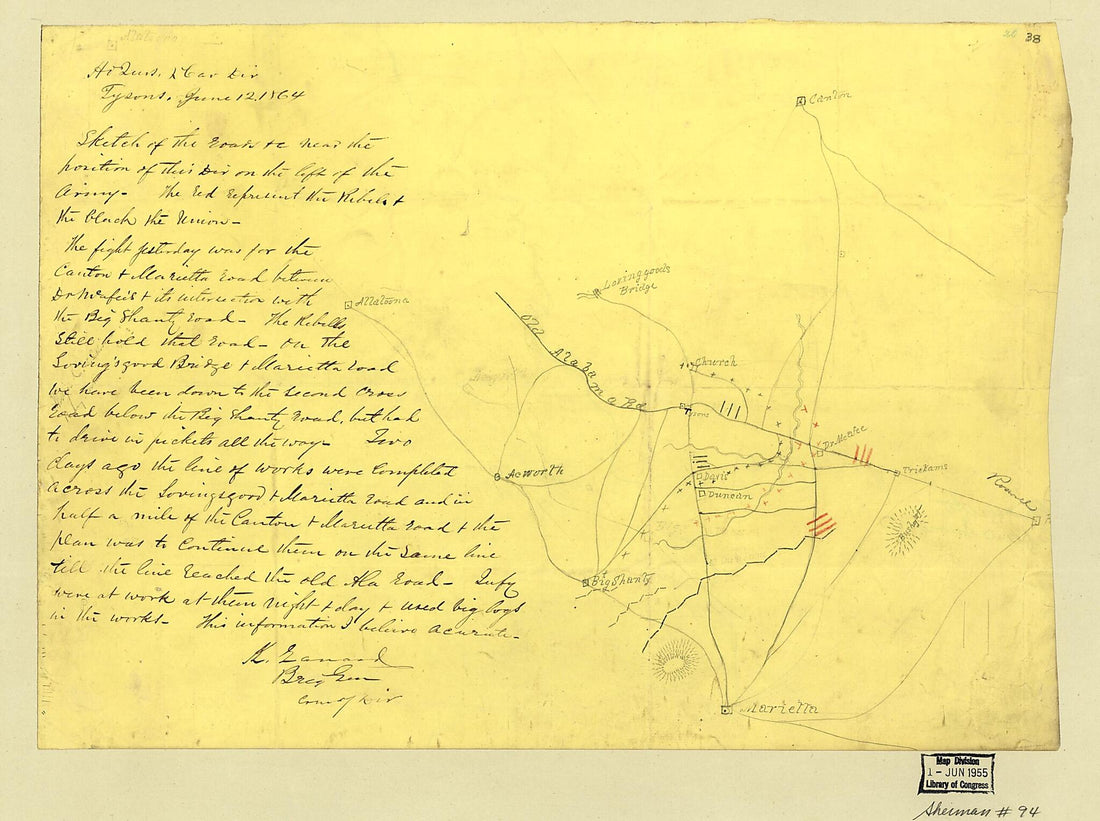 38
Allatoona
Hd Qurs. 2 Cav Div
Tysons, June 12, 1864
Sketch of the roads &c near the
position of this Div on the left of the
Army - The red represent the Rebels &
the black the Union -
The fight yesterday was for the
Canton & Marietta road between
Dr McAfee's & its intersection with
the Big Shanty road - The Rebells
still hold that road - On the
Loving'sgood Bridge & Marietta road
we have been down to the second cross
road below the Big Shanty road, but had
to drive in pickets all the way - Two
days ago the line of works were completed
across the Lovingsgood & Marietta road and in
half a mile of the Canton & Marietta road & the
plan was to continue them on the same line
till the line reached the old Ala road -
were at work at them night & day & used big logs
in the works - This information I believe accurate -
K. Garrard
Brig Gen
Com'g Div
Canton
Lovinggoods
Bridge
Allatoona
Old Alabama Rd
Church
Tysons
Dr McAfee
Acworth
Davis
Duncan
Trickams
Roswell
Big Shanty
Marietta
Map Division
1 - JUN 1955
Library of Congress
Sherman # 94